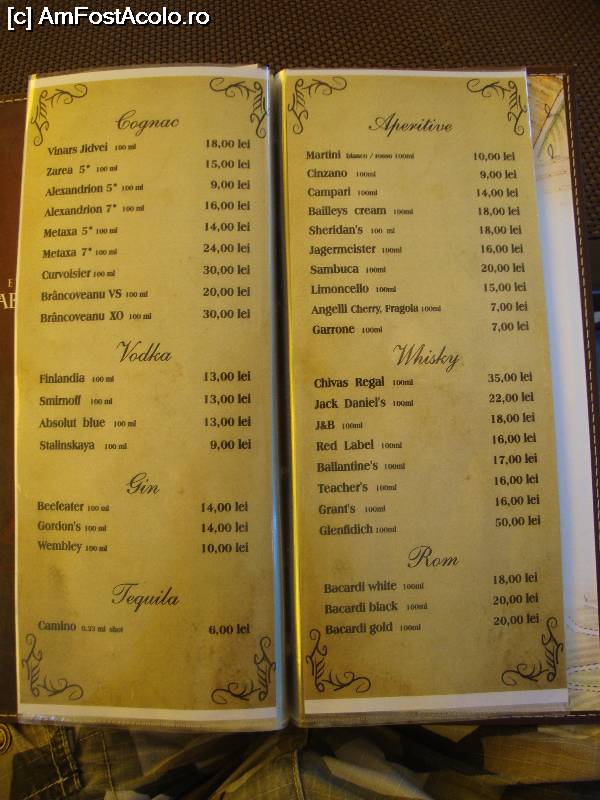 [c] AmFostAcolo.ro
Cognac
Vinars Jidvei 100 ml 18,00 lei
Zarea 5* 100 ml 15,00 lei
Alexandrion 5* 100 ml 9,00 lei
Alexandrion 7* 100 ml 16,00 lei
Metaxa 5* 100 ml 14,00 lei
Metaxa 7* 100 ml 24,00 lei
Curvoisier 100 ml 30,00 lei
Brâncoveanu VS 100 ml 20,00 lei
Brâncoveanu XO 100 ml 30,00 lei
Vodka
Finlandia 100 ml 13,00 lei
Smirnoff 100 ml 13,00 lei
Absolut blue 100 ml 13,00 lei
Stalinskaya 100 ml 9,00 lei
Gin
Beefeater 100 ml 14,00 lei
Gordon's 100 ml 14,00 lei
Wembley 100 ml 10,00 lei
Tequila
Camino 0.33 ml shot 6,00 lei
Aperitive
Martini bianco / rosso 100ml 10,00 lei
Cinzano 100ml 9,00 lei
Campari 100ml 14,00 lei
Bailleys cream 100ml 18,00 lei
Sheridan's 100 ml 18,00 lei
Jagermeister 100ml 16,00 lei
Sambuca 100ml 20,00 lei
Limoncello 100ml 15,00 lei
Angelli Cherry, Fragola 100ml 7,00 lei
Garrone 100ml 7,00 lei
Whisky
Chivas Regal 100ml 35,00 lei
Jack Daniel's 100ml 22,00 lei
J&B 100ml 18,00 lei
Red Label 100ml 16,00 lei
Ballantine's 100ml 17,00 lei
Teacher's 100ml 16,00 lei
Grant's 100ml 16,00 lei
Glenfidich 100ml 50,00 lei
Rom
Bacardi white 100ml 18,00 lei
Bacardi black 100ml 20,00 lei
Bacardi gold 100ml 20,00 lei